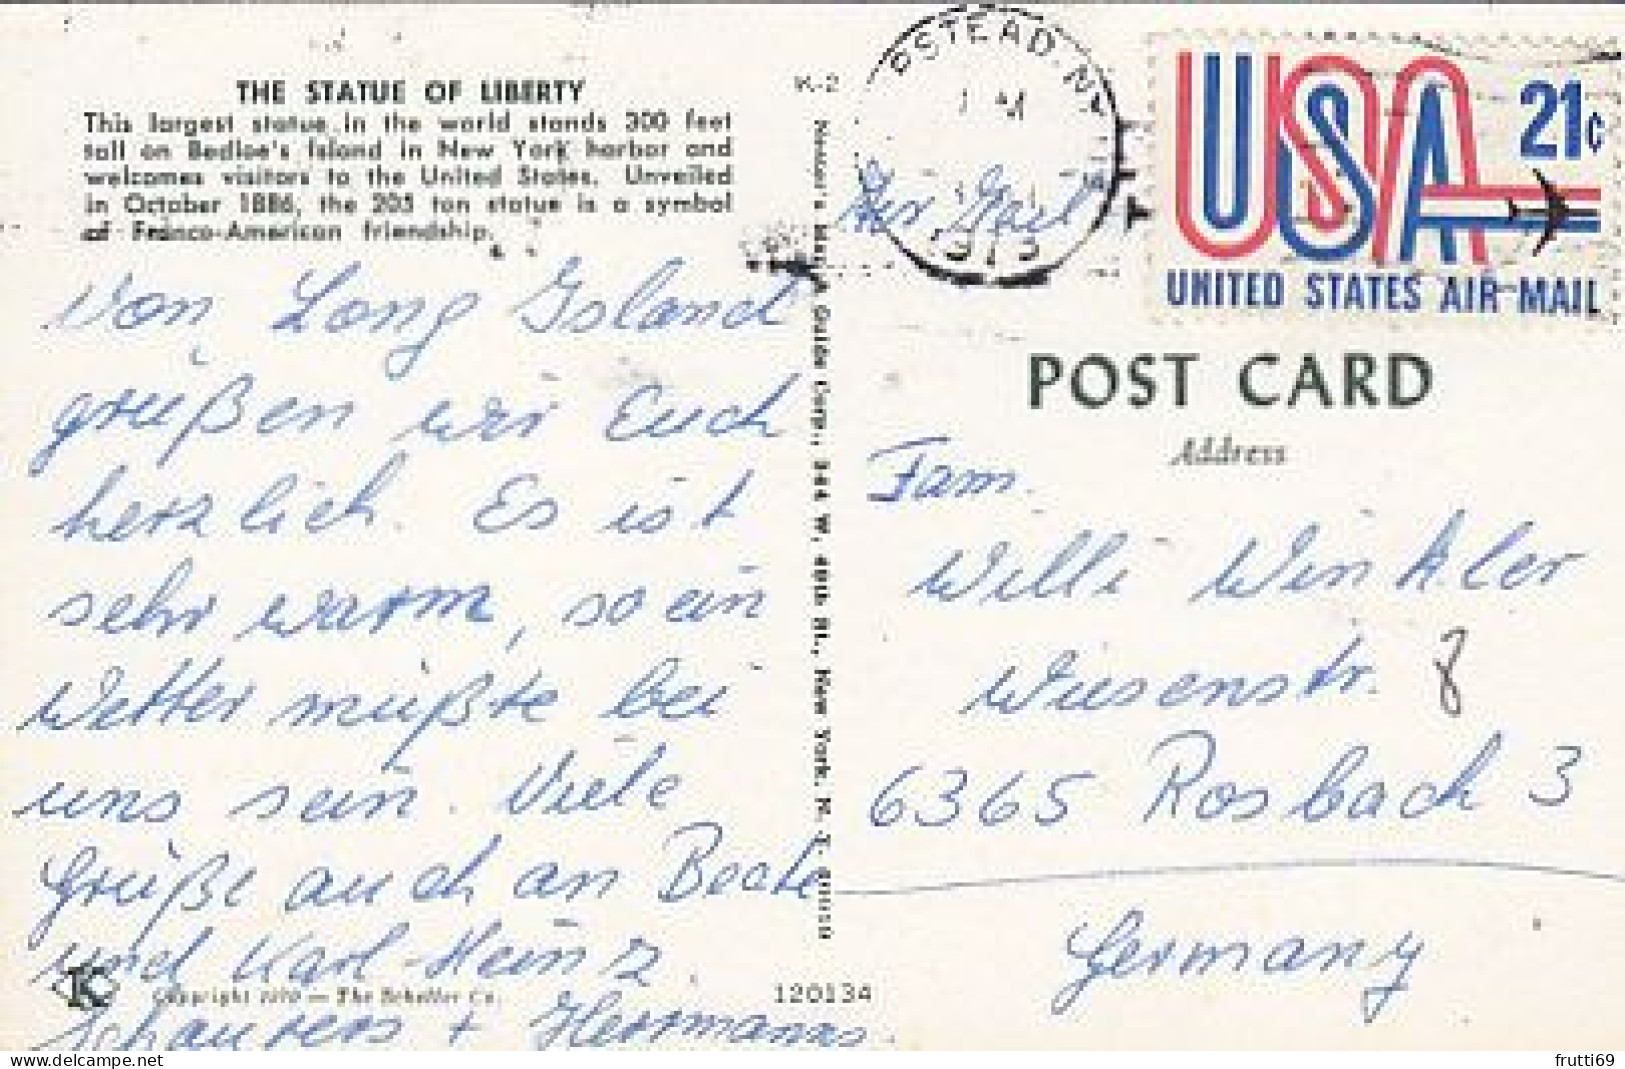 THE STATUE OF LIBERTY
This largest statue in the world stands 300 feet
tall on Bedloe's Island in New York harbor and
welcomes visitors to the United States. Unveiled
in October 1886, the 205 ton statue is a symbol
of Franco-American friendship.
Von Long Island
grüßen wir Euch
herzlich. Es ist
sehr warm, so ein
Wetter müßte bei
uns sein. Viele
Grüße auch an Beate
und Karl-Heinz.
Schaurers + Herrmanns.
K
Copyright 1970 — The Scheller Co.
120134
K-2
Nester's Map & Guide Corp., 244 W. 49th St., New York, N. Y.
OSTEAD, NY
M
Air Mail
USA 21c
UNITED STATES AIR MAIL
POST CARD
Address
Fam.
Willi Winkler
Wiesenstr. 8
6365 Rosbach 3
Germany
frutti69
https://www.delcampe.net